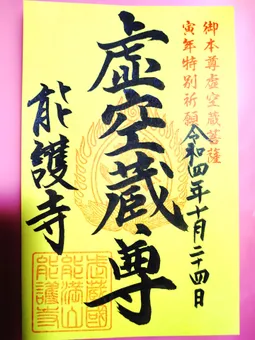 御本尊虚空蔵菩薩
寅年特別祈願
令和四年十月二十四日
虚空蔵尊
能護寺
武蔵國
能満山
能護寺